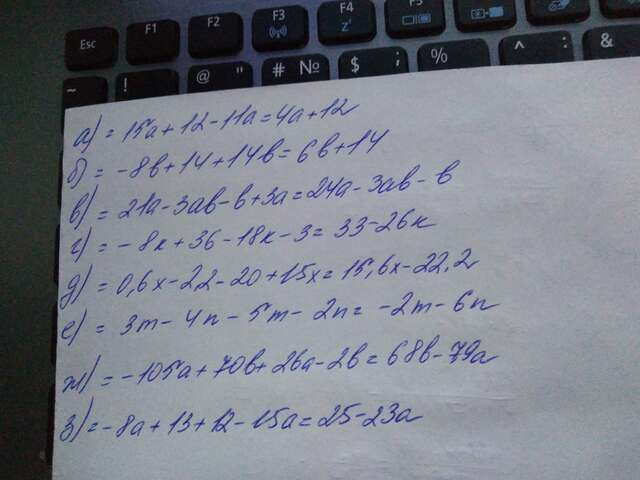 Esc F1 F2 F3 F4 F5 F6
~ ! @ " # № $ ; % ^ : &
а) = 15a + 12 - 11a = 4a + 12
б) = -8b + 14 + 14b = 6b + 14
в) = 21a - 3ab - b + 3a = 24a - 3ab - b
г) = -8к + 36 - 18к - 3 = 33 - 26к
д) = 0,6x - 2,2 - 20 + 15x = 15,6x - 22,2
е) = 3m - 4n - 5m - 2n = -2m - 6n
ж) = -105a + 70b + 26a - 2b = 68b - 79a
з) = -8a + 13 + 12 - 15a = 25 - 23a